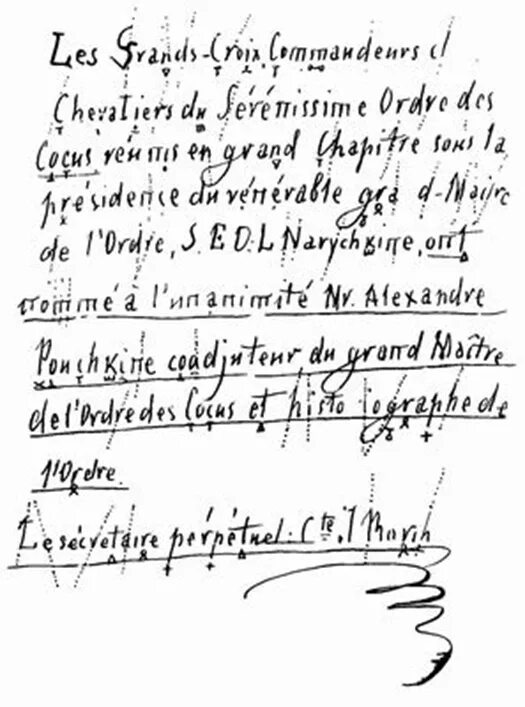 Les Grands-Croix, Commandeurs et
Chevaliers du Sérénissime Ordre des
Cocus réunis en grand Chapitre sous la
présidence du vénérable gra d-Maitre
de l'Ordre, S. E. D. L Narychkine, ont
nommé à l'unanimité Mr. Alexandre
Pouchkine coadjuteur du grand Maître
de l'Ordre des Cocus et histo iographe de
l'Ordre.
Le sécretaire perpétuel: Cte. J Borch